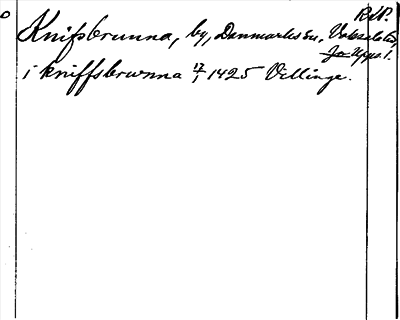 RAP.
Knifsbrunna, by, Danmarks sn, Vaksala hd,
Upps. l.
i kniffsbrwnna 17/1 1425 Villinge.